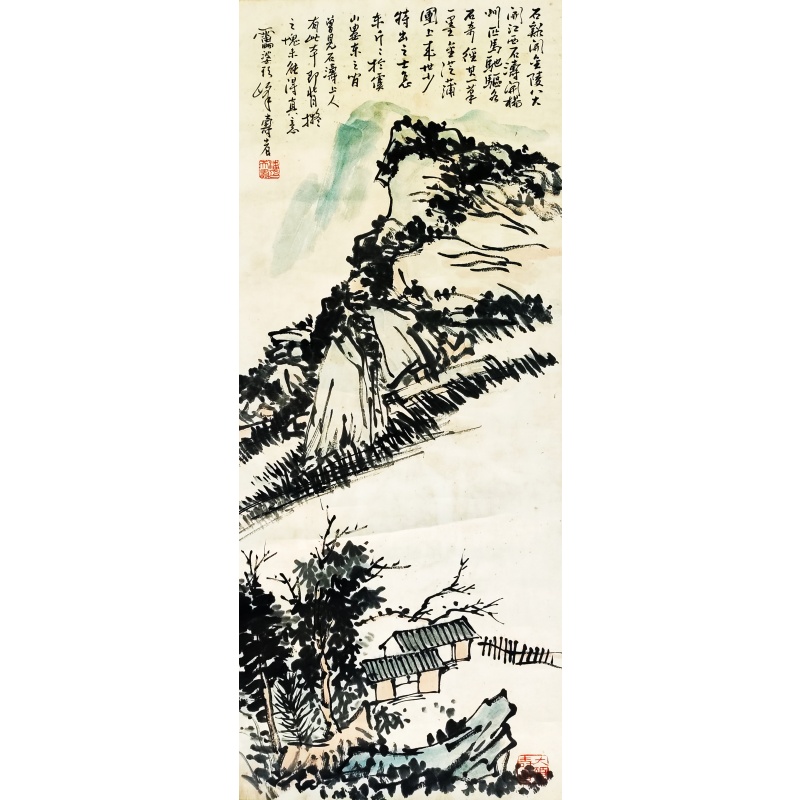 石谿開金陵八大
開江西石濤開揚
州匹馬馳驅各
有奇徑其一筆
一墨全從蒲
團上來世少
特出之士怎
不斤〻於虞
山婁東之間
曾見石濤上人
有此本即背擬
之愧未能得真意
雷婆頭峰壽者